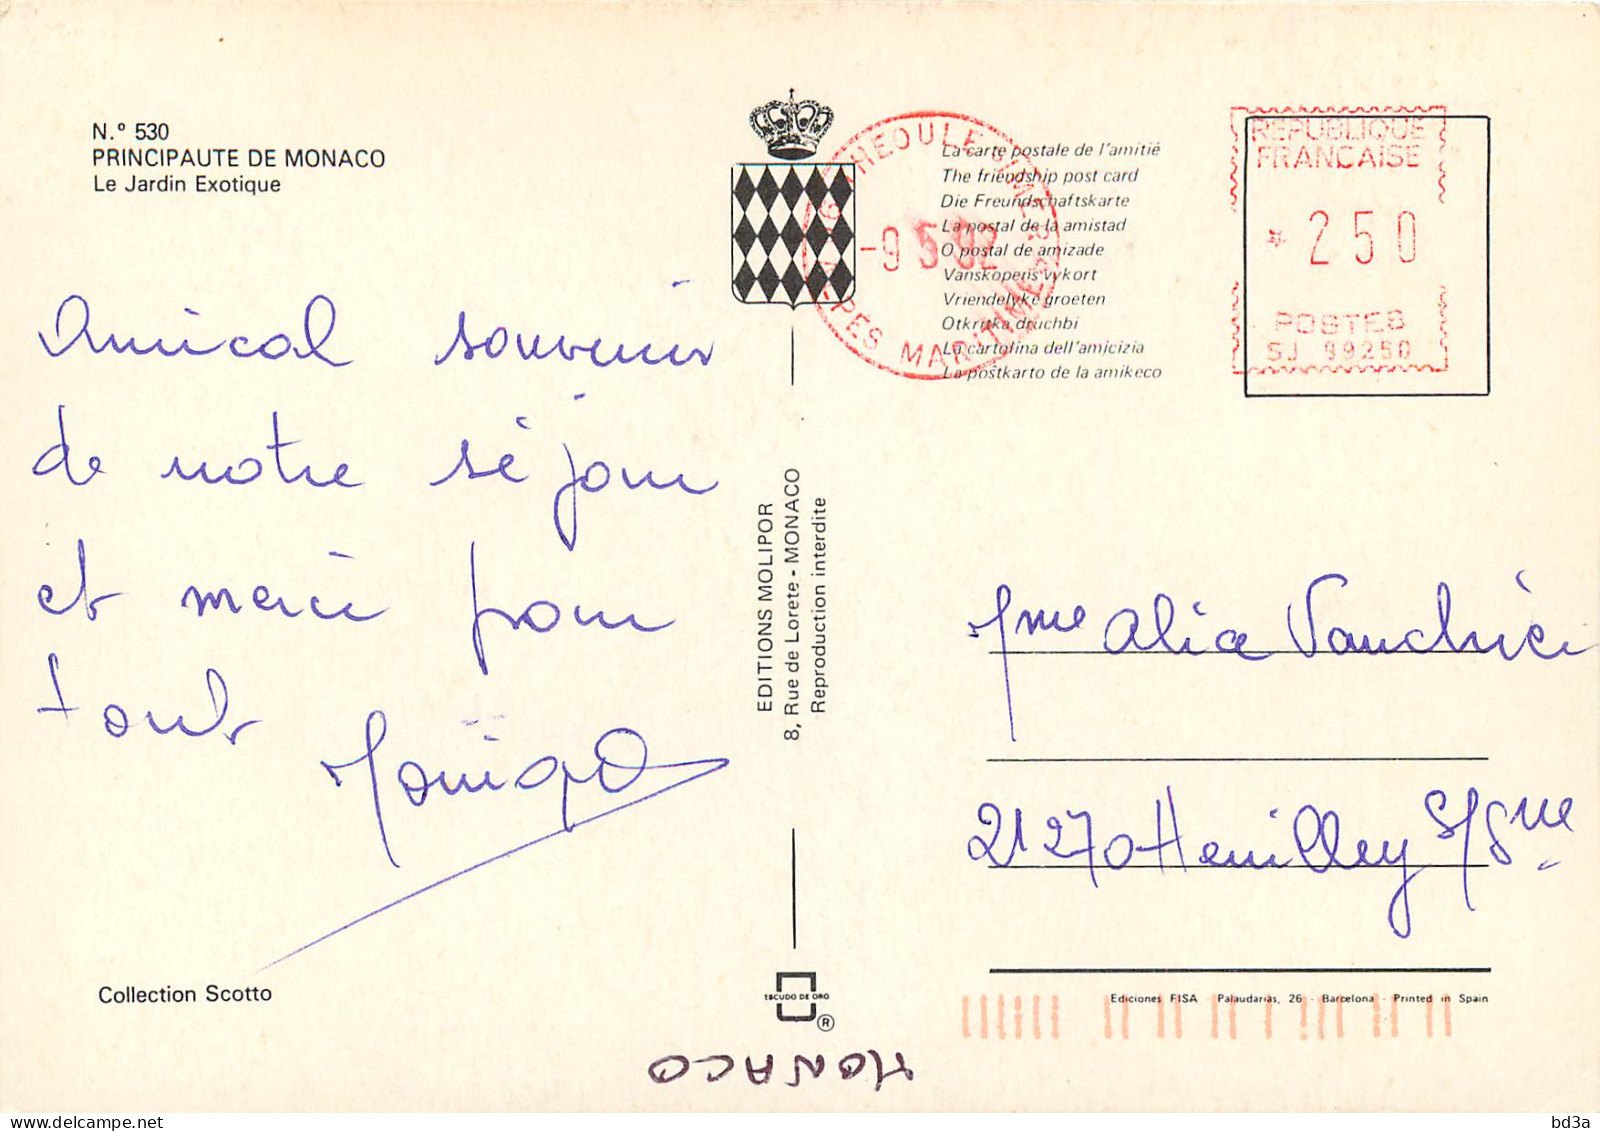 N.º 530
PRINCIPAUTE DE MONACO
Le Jardin Exotique
Amical souvenir
de notre séjour
et merci pour
tout
Collection Scotto
EDITIONS MOLIPOR
8, Rue de Lorete - MONACO
Reproduction interdite
THEOULE S/MER
ALPES MARITIMES
-9 5 
La carte postale de l'amitié
The friendship post card
Die Freundschaftskarte
La postal de la amistad
O postal de amizade
Vanskoperis vykort
Vriendelyke groeten
Otkritka druchbi
La cartolina dell'amicizia
La postkarto de la amikeco
REPUBLIQUE
FRANCAISE
* 250
POSTES
SJ 99250
Mme Alice
21270 Heuilley S/Sne
ESCUDO DE ORO
®
Ediciones FISA - Palaudarias, 26 - Barcelona - Printed in Spain
MONACO
bd3a